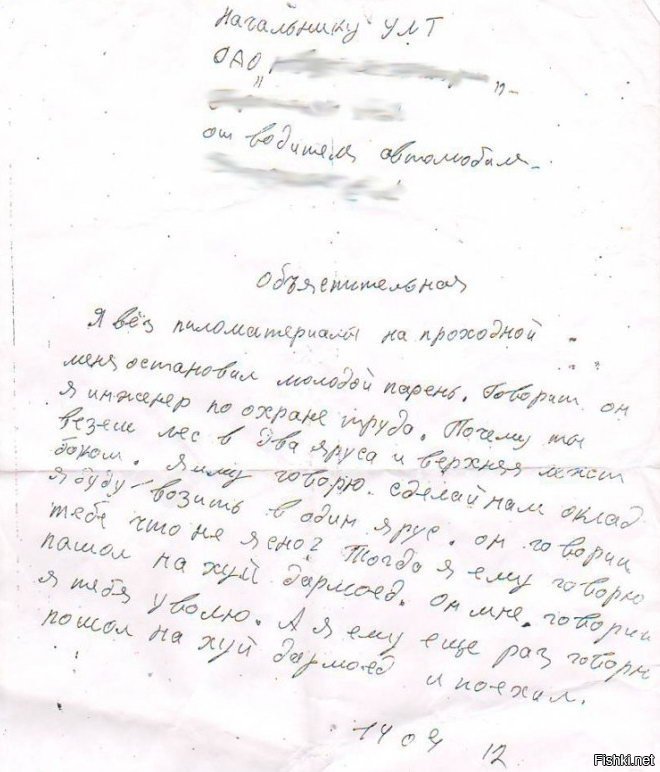 Начальнику УМТ
ОАО "
"-
от водителя автомобиля-
Объястительная
Я вёз пиломатериалы на проходной
меня остановил молодой парень. Говорит он
я инженер по охране труда. Почему ты
везеш лес в два яруса и верхняя лежит
боком. Я иму говорю. сделай нам оклад
я буду возить в один ярус. он говорит
тебе что не ясно? Тогда я ему говорю
пашол на хуй дармоед. он мне говорит
я тебя уволю. А я ему еще раз говорю
пошол на хуй дармоед и поехал.
14 04 12
Fishki.net